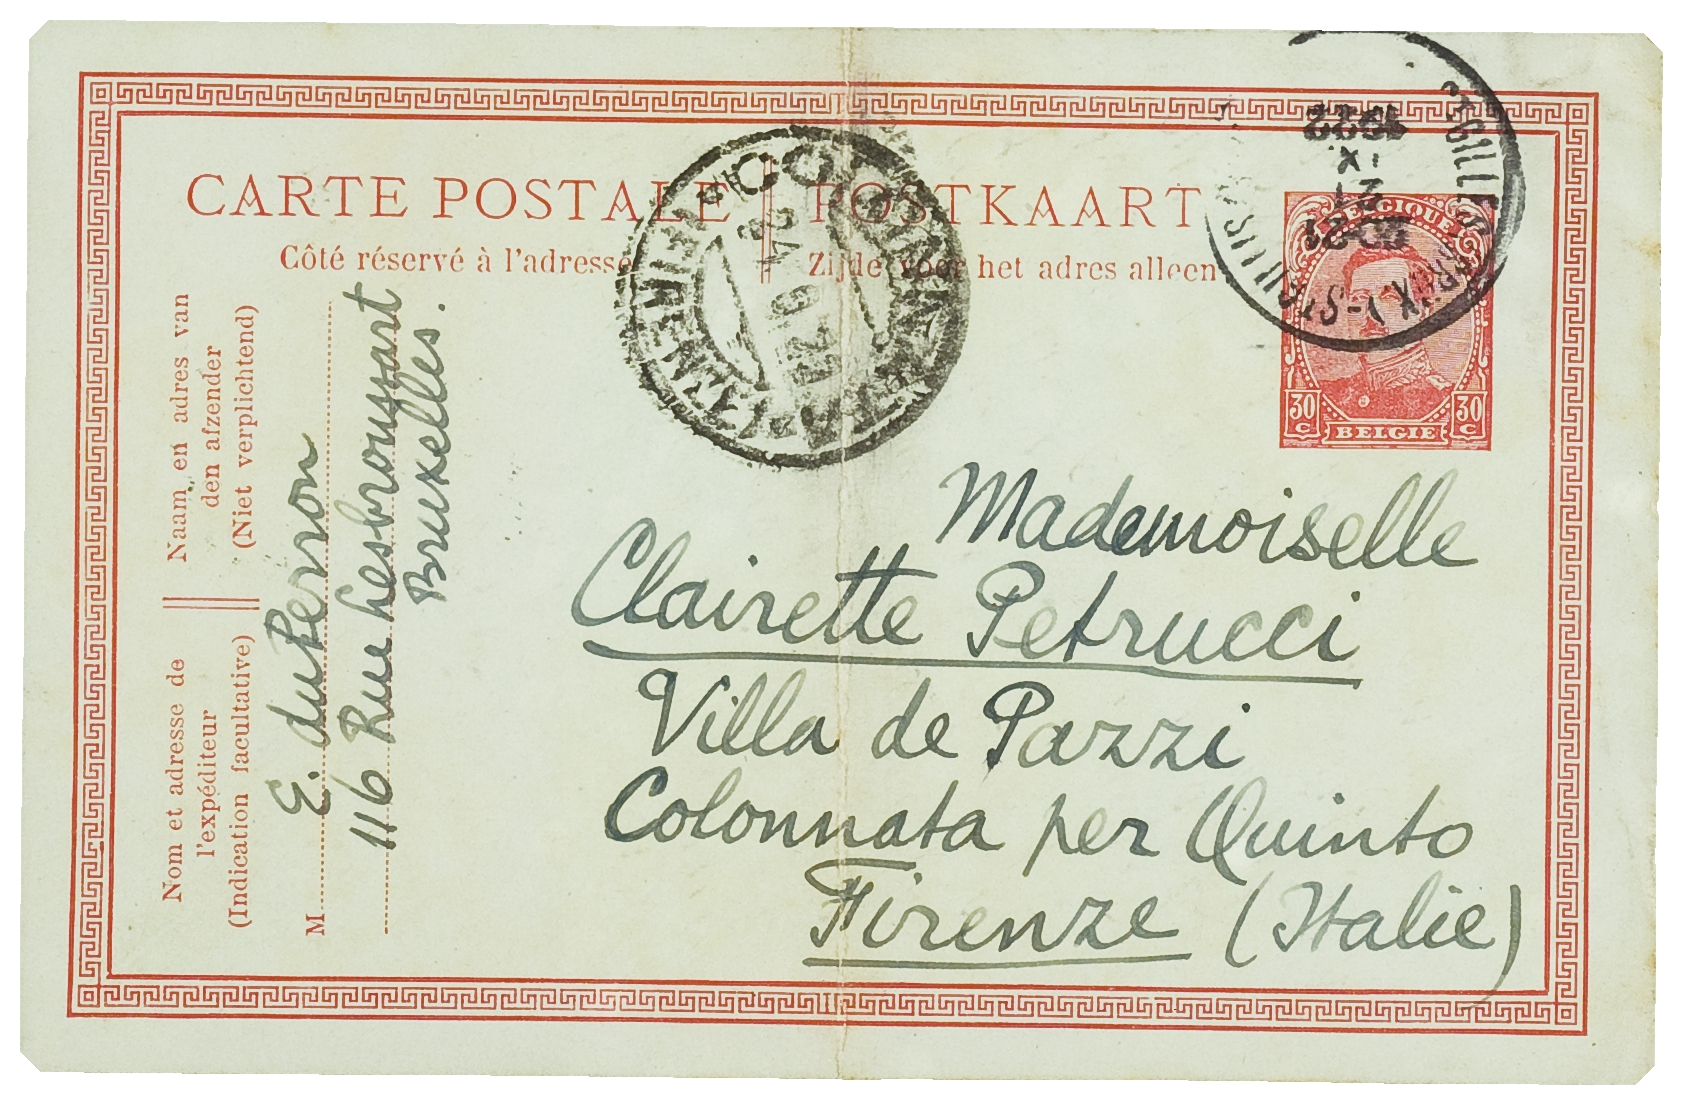 CARTE POSTALE
POSTKAART
Côté réservé à l'adresse
Zijde voor het adres alleen
BELGIQUE
30 C
30 C
BELGIE
1922
IX
27
COLONNATA
(FIRENZE)
Naam en adres van
den afzender
(Niet verplichtend)
Nom et adresse de
l'expéditeur
(Indication facultative)
M
E. duPerron
116 Rue hesbroussart
Bruxelles.
Mademoiselle
Clairette Petrucci
Villa de Pazzi
Colonnata per Quinto
Firenze (Italie)